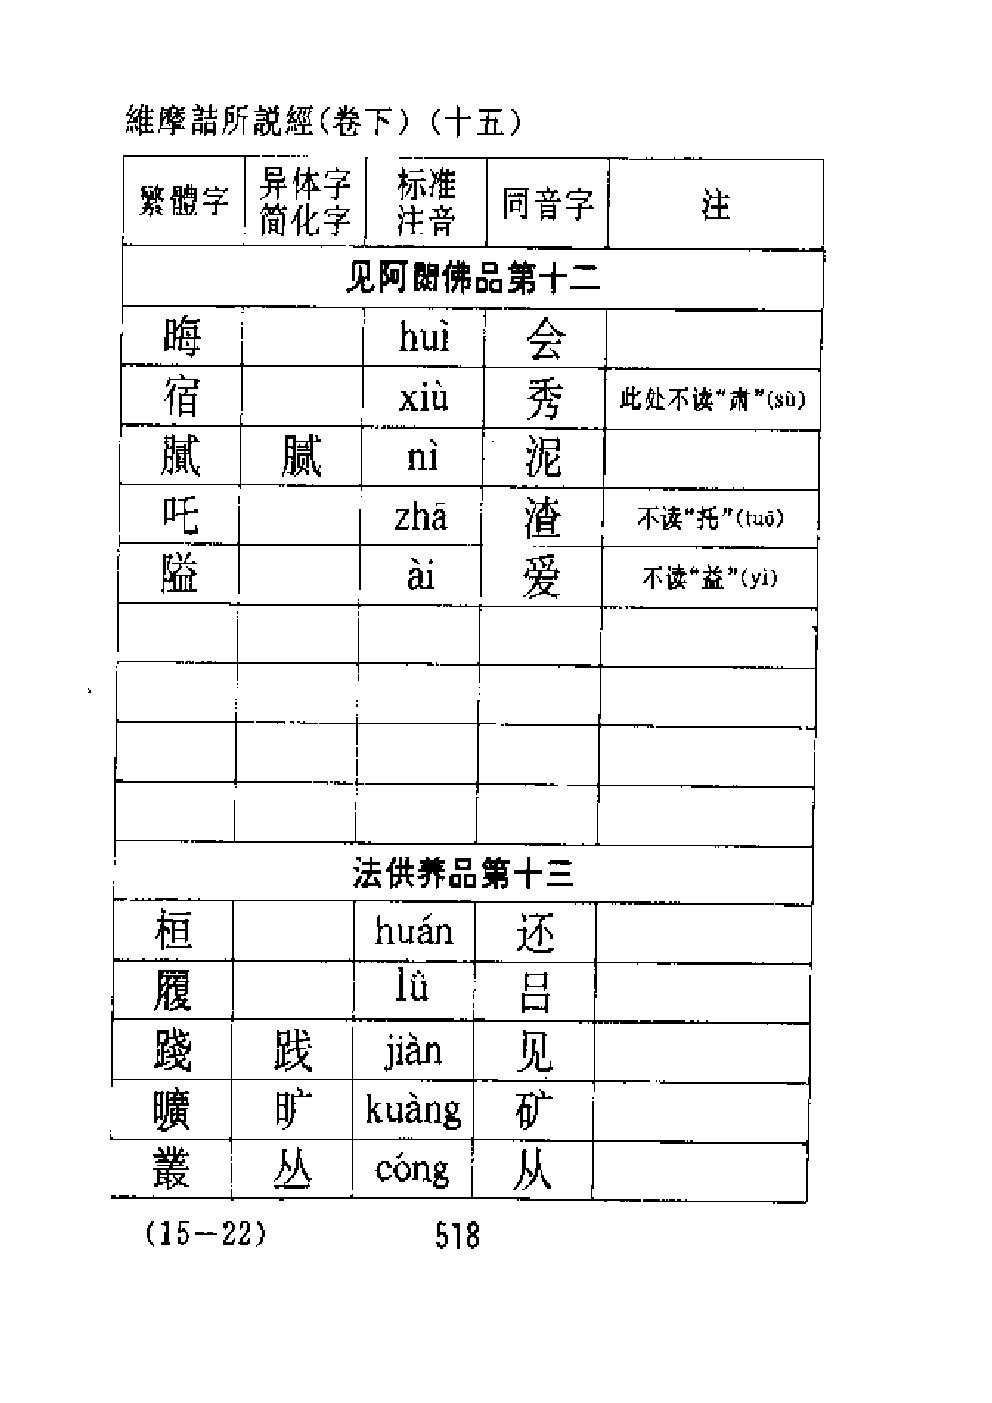 維摩詰所説經(卷下)(十五)
繁體字 异体字简化字 标准注音 同音字 注
见阿閦佛品第十二
晦 huì 会
宿 xiù 秀 此处不读“肃”(sù)
膩 腻 nì 泥
吒 zhā 渣 不读“托”(tuō)
隘 ài 爱 不读“益”(yì)
法供养品第十三
桓 huán 还
履 lǚ 吕
踐 践 jiàn 见
曠 旷 kuàng 矿
叢 丛 cóng 从
(15-22) 518